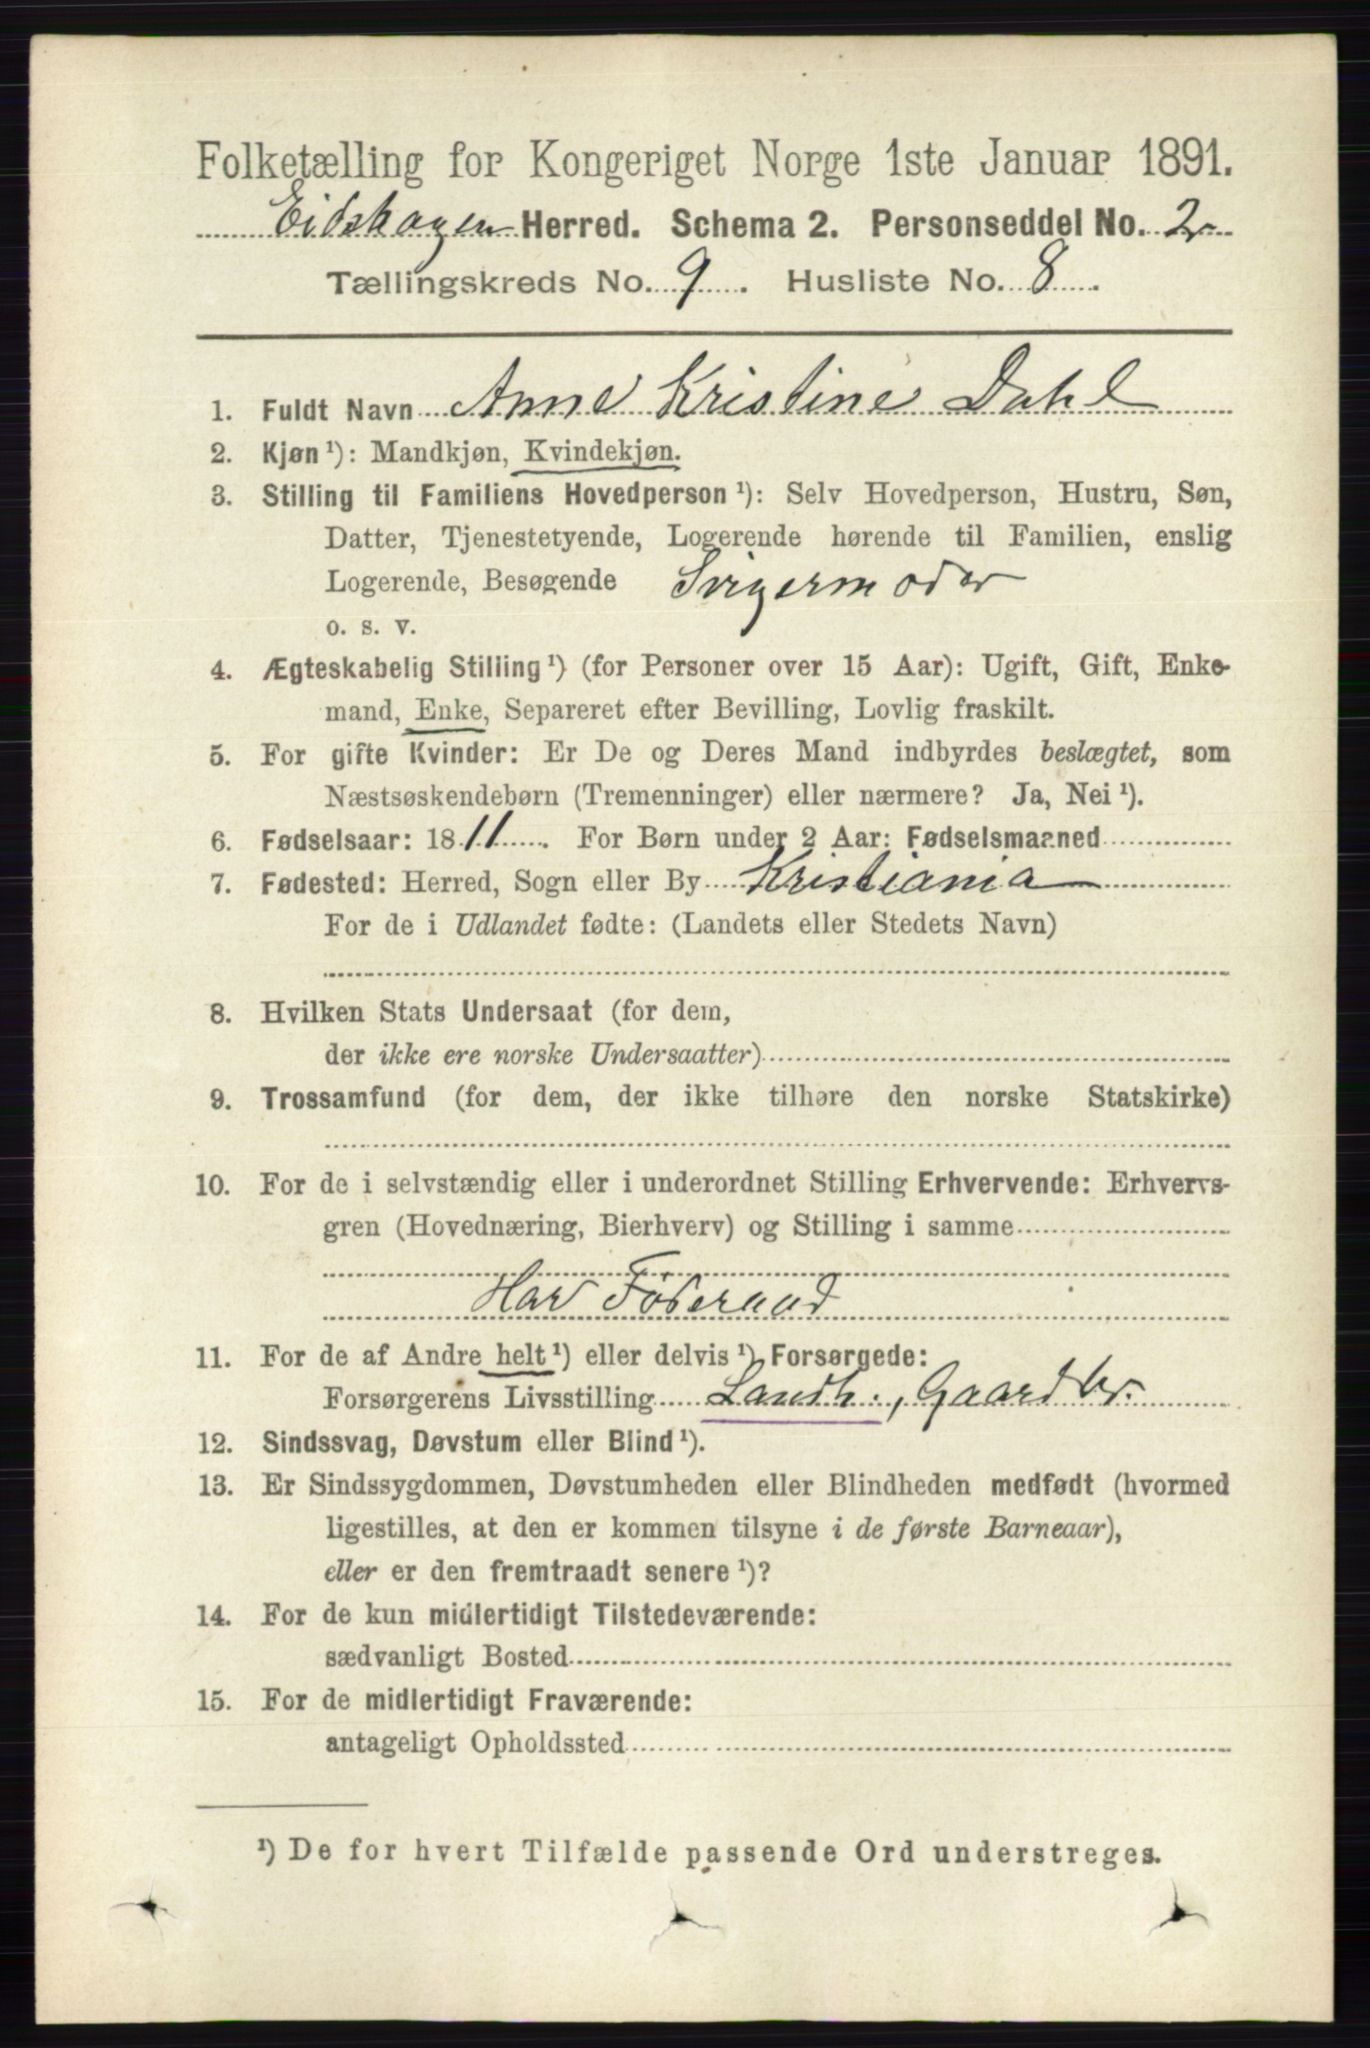 Folketælling for Kongeriget Norge 1ste Januar 1891.
Eidskogen Herred. Schema 2. Personseddel No. 2
Tællingskreds No. 9. Husliste No. 8.
1. Fuldt Navn Anne Kristine Dahl
2. Kjøn ¹): Mandkjøn, Kvindekjøn.
3. Stilling til Familiens Hovedperson ¹): Selv Hovedperson, Hustru, Søn,
Datter, Tjenestetyende, Logerende hørende til Familien, enslig
Logerende, Besøgende Svigermoder
o. s. v.
4. Ægteskabelig Stilling ¹) (for Personer over 15 Aar): Ugift, Gift, Enke-
mand, Enke, Separeret efter Bevilling, Lovlig fraskilt.
5. For gifte Kvinder: Er De og Deres Mand indbyrdes beslægtet, som
Næstsøskendebørn (Tremenninger) eller nærmere? Ja, Nei ¹).
6. Fødselsaar: 1811. For Børn under 2 Aar: Fødselsmaaned
7. Fødested: Herred, Sogn eller By Kristiania
For de i Udlandet fødte: (Landets eller Stedets Navn)
8. Hvilken Stats Undersaat (for dem,
der ikke ere norske Undersaatter)
9. Trossamfund (for dem, der ikke tilhøre den norske Statskirke)
10. For de i selvstændig eller i underordnet Stilling Erhvervende: Erhvervs-
gren (Hovednæring, Bierhverv) og Stilling i samme
Har Föderaad
11. For de af Andre helt ¹) eller delvis ¹) Forsørgede:
Forsørgerens Livsstilling Landh., Gaardbr.
12. Sindssvag, Døvstum eller Blind ¹).
13. Er Sindssygdommen, Døvstumheden eller Blindheden medfødt (hvormed
ligestilles, at den er kommen tilsyne i de første Barneaar),
eller er den fremtraadt senere ¹)?
14. For de kun midlertidigt Tilstedeværende:
sædvanligt Bosted
15. For de midlertidigt Fraværende:
antageligt Opholdssted
¹) De for hvert Tilfælde passende Ord understreges.